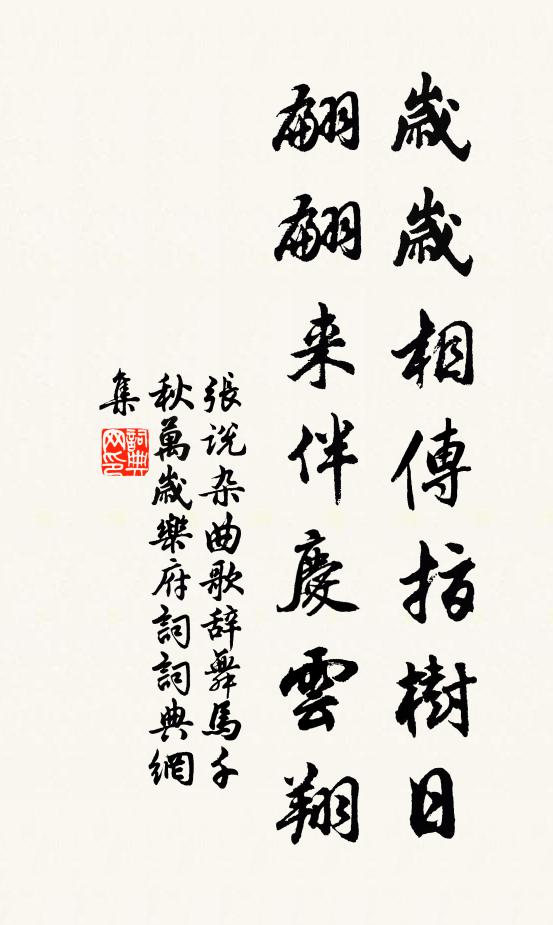 歲歲相傳指樹日
翩翩来伴慶雲翔
張说杂曲歌辞舞馬千
秋萬歲樂府詞詞典網
集
詞典
网印